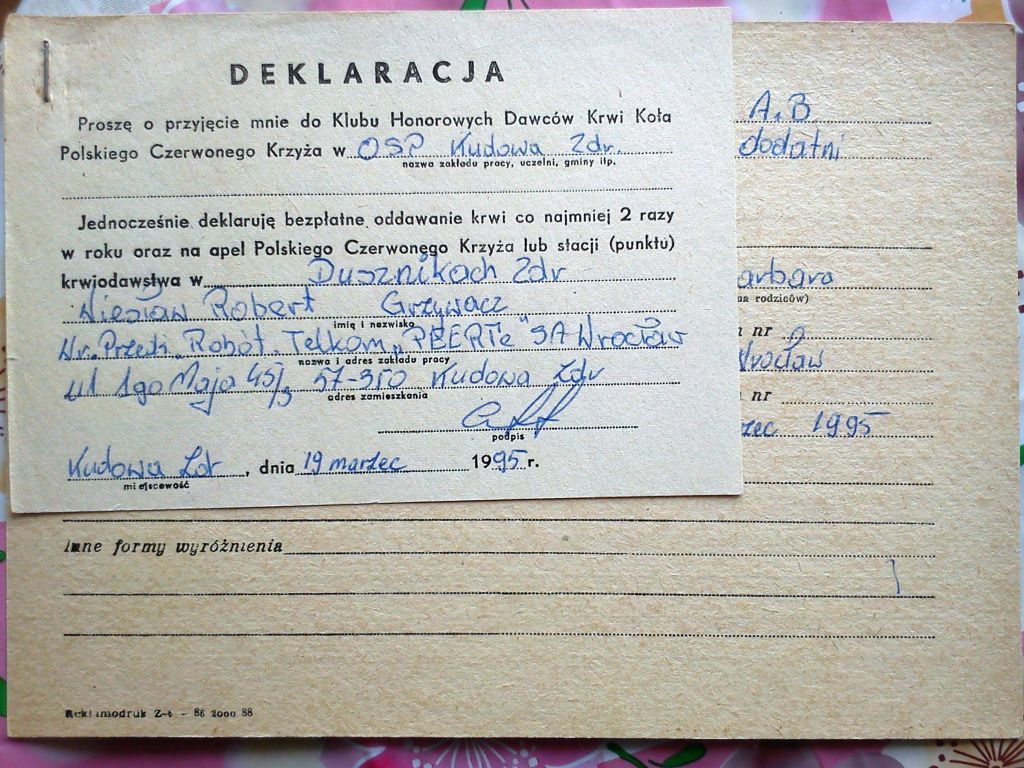 DEKLARACJA
Proszę o przyjęcie mnie do Klubu Honorowych Dawców Krwi Koła
Polskiego Czerwonego Krzyża w OSP Kudowa Zdr.
nazwa zakładu pracy, uczelni, gminy itp.
Jednocześnie deklaruję bezpłatne oddawanie krwi co najmniej 2 razy
w roku oraz na apel Polskiego Czerwonego Krzyża lub stacji (punktu)
krwiodawstwa w Dusznikach Zdr
Wiesław Robert Grzywacz
imię i nazwisko
Wr. Przeds. Robót. Telkom „PEERTe" SA Wrocław
nazwa i adres zakładu pracy
ul 1go Maja 45/3 57-350 Kudowa Zdr
adres zamieszkania
podpis
Kudowa Zdr, dnia 19 marzec 1995 r.
miejscowość
A.B
dodatni
arbara
na rodziców)
nr
rocław
nr
zec 1995
Inne formy wyróżnienia
Reklamodruk Z-t - 86 2000 88